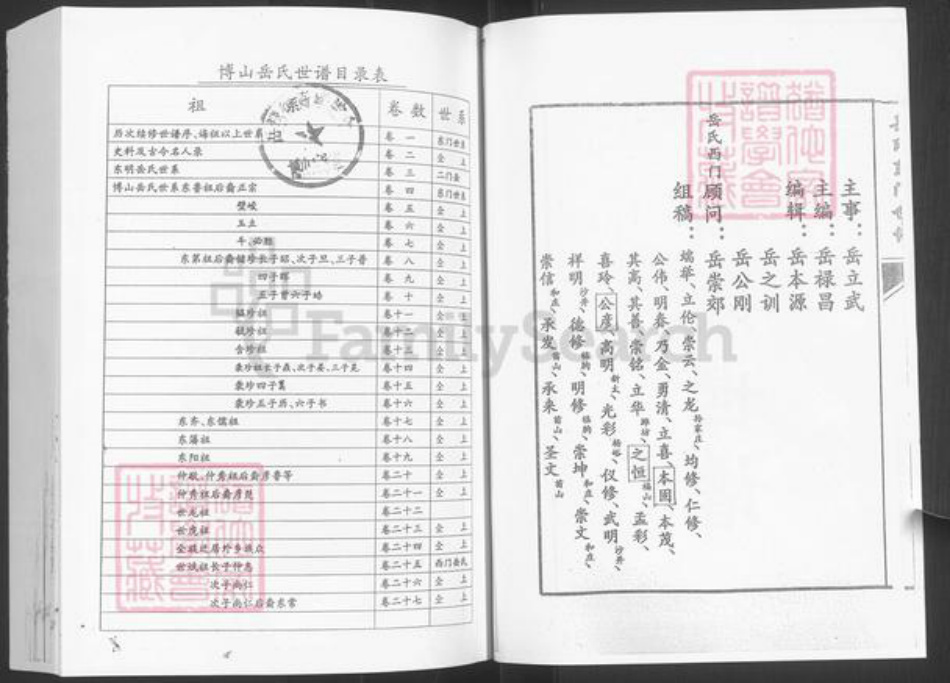 博山岳氏世谱目录表
祖 系 卷数 世系
历次续修世谱序、诲祖以上世系 卷一 东门世系
史料及古今名人录 卷二 仝上
东明岳氏世系 卷三 二门仝
博山岳氏世系东鲁祖后裔正宗 卷四 东门世系
璧峻 卷五 仝上
玉立 卷六 仝上
卷七 仝上
东第祖后裔储珍长子昭、次子旦、三子普 卷八 仝上
四子晖 卷九 仝上
五子曾六子皓 卷十 仝上
福珍祖 卷十一 仝上
毓珍祖 卷十二 仝上
含珍祖 卷十三 仝上
袭珍祖长子晶、次子晏、三子晃 卷十四 仝上
袭珍四子冕 卷十五 仝上
袭珍五子历、六子书 卷十六 仝上
东齐、东儒祖 卷十七 仝上
东藩祖 卷十八 仝上
东阳祖 卷十九 仝上
仲敬、仲秀祖后裔彦鲁等 卷二十 仝上
仲秀祖后裔彦昆 卷二十一 仝上
世龙祖 卷二十二
世虎祖 卷二十三 仝上
全族迁居外乡族众 卷二十四 仝上
世斌祖长子仲忠 卷二十五 西门岳氏
次子尚仁 卷二十六 仝上
次子尚仁后裔东常 卷二十七 仝上
主事：岳立武
主编：岳禄昌
编辑：岳本源
岳之训
岳公刚
岳氏西门顾问：岳崇郊
组稿：瑞华、立伦、崇云、之龙孙家庄、均修、仁修、
公伟、明春、乃金、勇清、立喜、本固、本茂、
其高、其善、崇铭、立华潍坊、之恒福山、孟彩、
喜玲、公彦、高明新土、光彩杨峪、仪修、武明沙井、
祥明沙井、德修临朐、明修临朐、崇坤和庄、崇文和庄、
崇信和庄、承发苗山、承来苗山、圣文苗山
FamilySearch